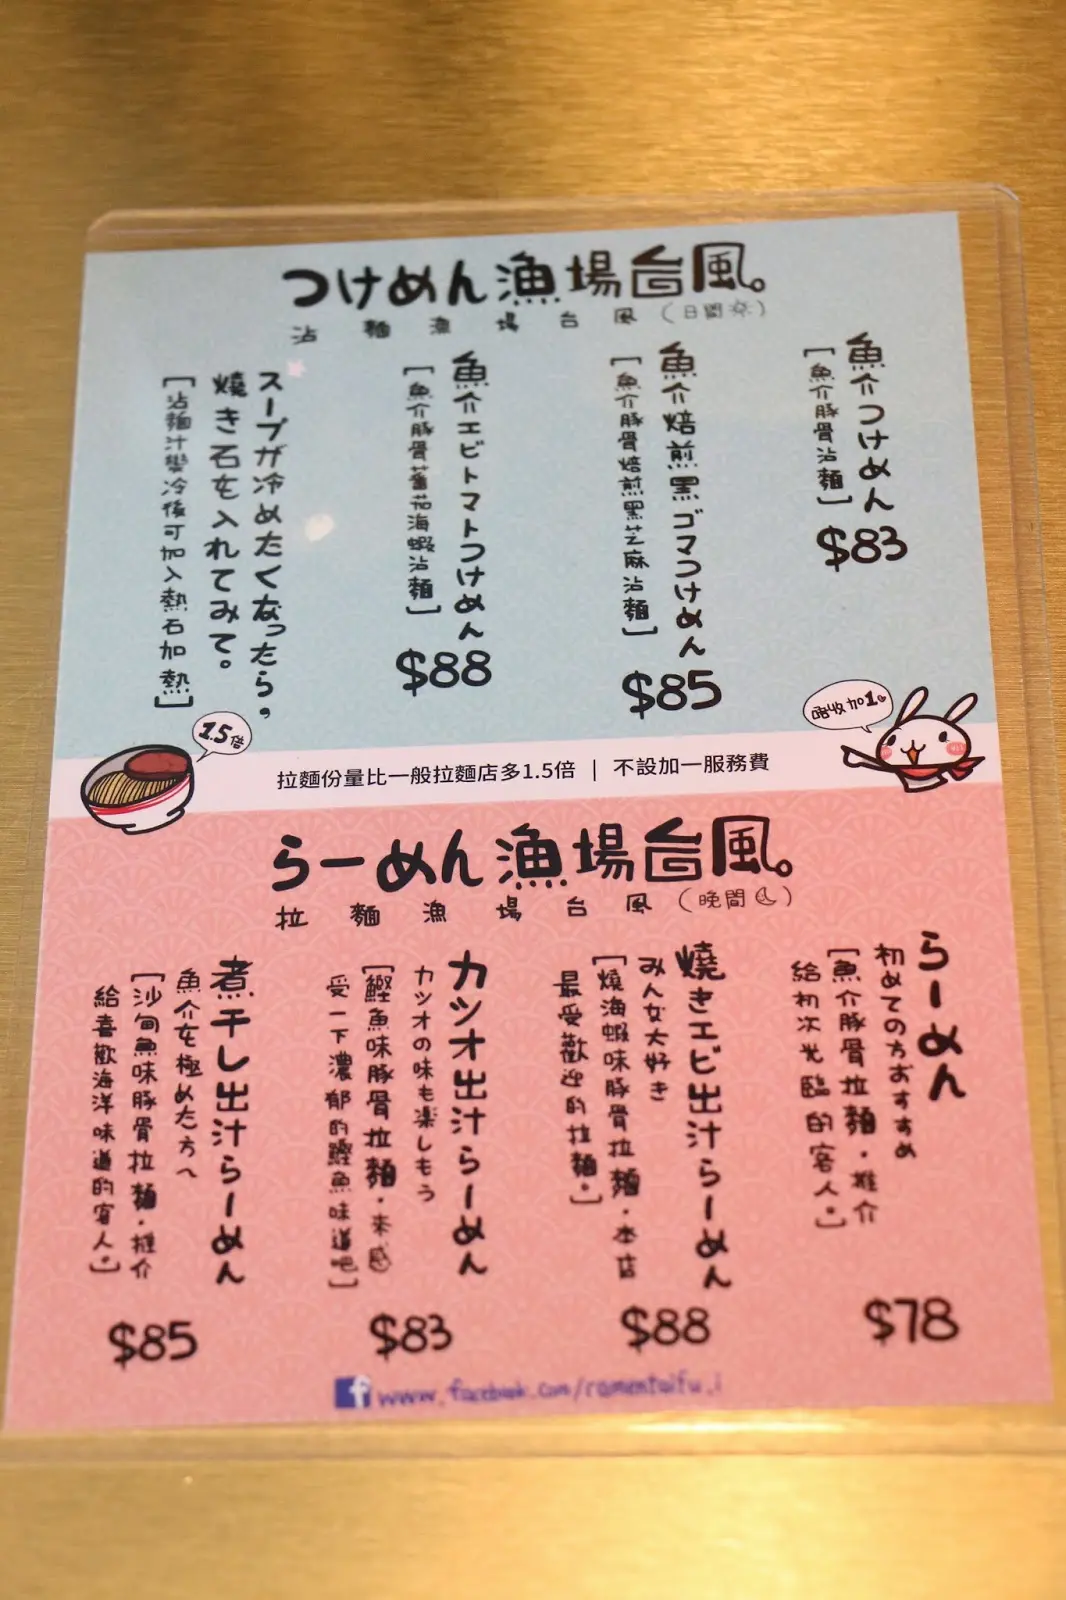 つけめん漁場台風。
沾麵漁場台風(日間)
魚介つけめん
[魚介豚骨沾麵]
$83
魚介焙煎黒ゴマつけめん
[魚介豚骨焙煎黑芝麻沾麵]
$85
魚介エビトマトつけめん
[魚介豚骨蕃茄海蝦沾麵]
$88
スープが冷めたくなったら。
燒き石を入れてみて。
[沾麵汁變冷後可加入熱石加熱]
1.5倍
唔收加1
拉麵份量比一般拉麵店多1.5倍 | 不設加一服務費
らーめん漁場台風。
拉麵漁場台風(晚間)
らーめん
初めての方おすすめ
[魚介豚骨拉麵·推介
給初次光臨的客人。]
$78
燒きエビ出汁らーめん
みん女大好き
[燒海蝦味豚骨拉麵·本店
最受歡迎的拉麵。]
$88
カツオ出汁らーめん
カツオの味も楽しもう
[鰹魚味豚骨拉麵·來感
受一下濃郁的鰹魚味道吧]
$83
煮干し出汁らーめん
魚介を極めた方へ
[沙甸魚味豚骨拉麵·推介
給喜歡海洋味道的客人。]
$85
f www.facebook.com/ramentaifu.i